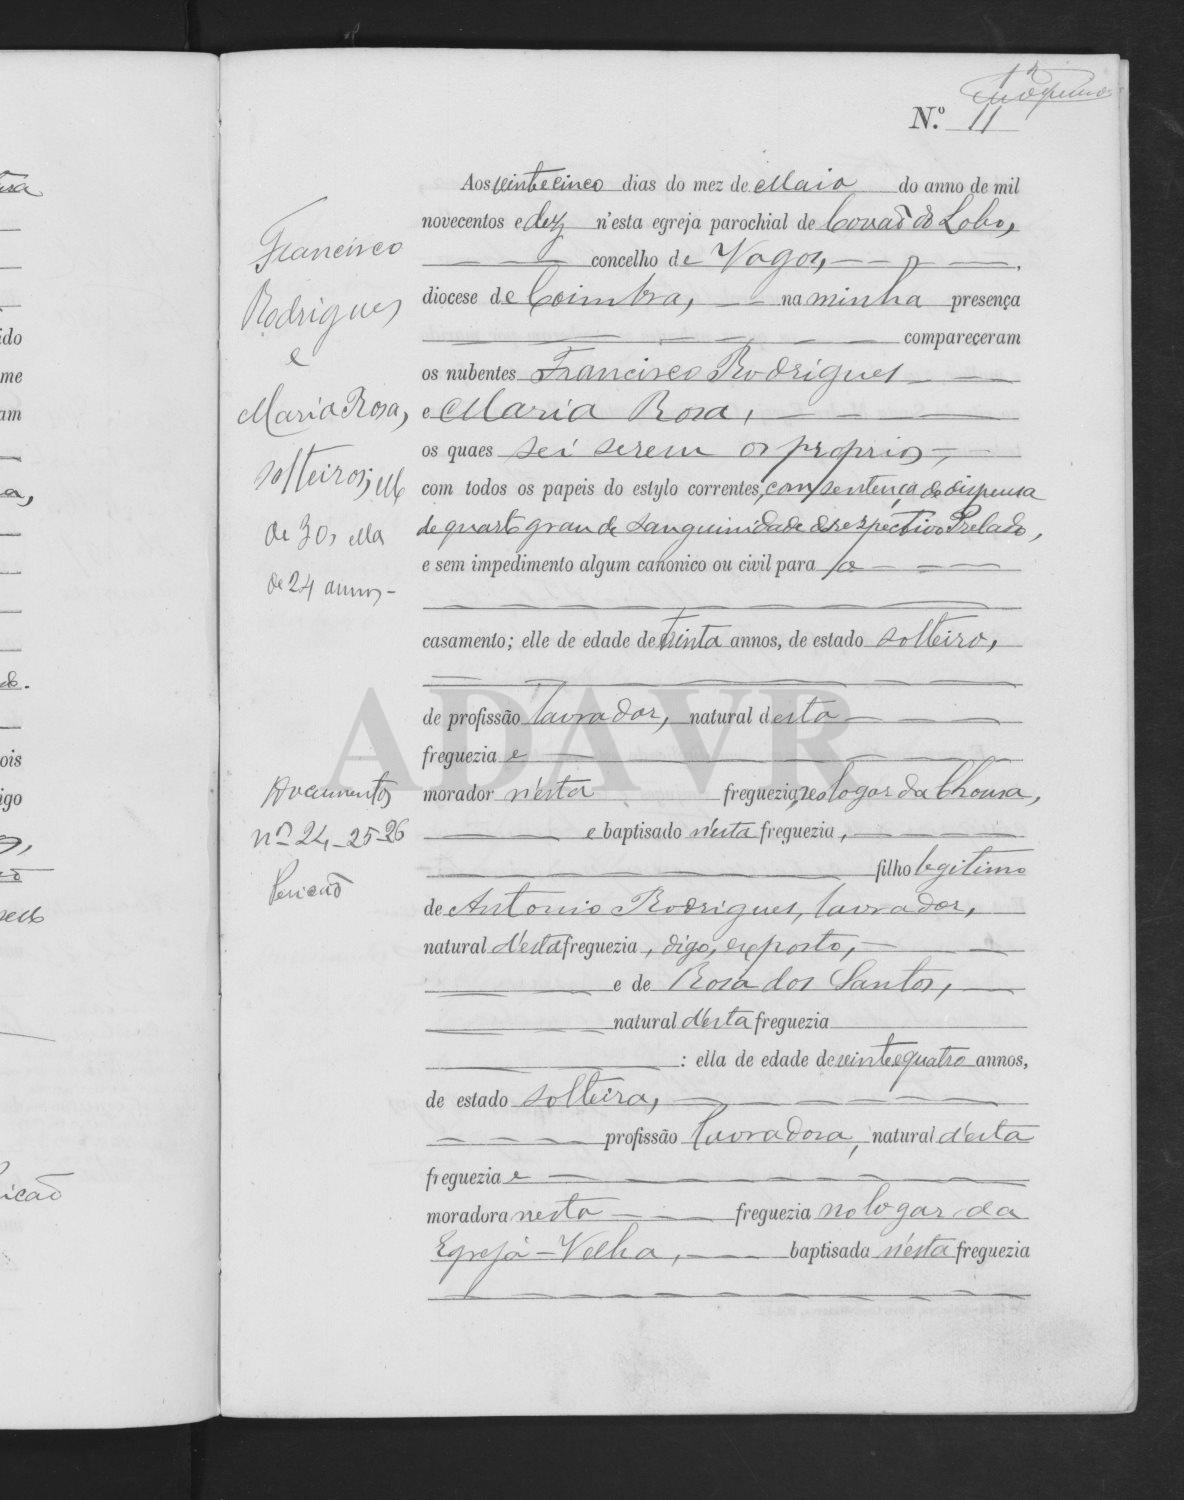 N.º 11
Aos vinte e cinco dias do mez de Maio do anno de mil
novecentos e dez n'esta egreja parochial de Covão do Lobo,
concelho de Vagos,
diocese de Coimbra, na minha presença
compareceram
os nubentes Francisco Rodrigues
e Maria Rosa,
os quaes sei serem os proprios,
com todos os papeis do estylo correntes, com sentença de dispensa
de quarto grau de sanguinidade do respectivo Prelado,
e sem impedimento algum canonico ou civil para o
casamento; elle de edade de trinta annos, de estado solteiro,
de profissão lavrador, natural d'esta
freguezia e
morador n'esta freguezia, no logar da Chousa,
e baptisado n'esta freguezia,
filho legitimo
de Antonio Rodrigues, lavrador,
natural d'esta freguezia, digo, exposto,
e de Rosa dos Santos,
natural d'esta freguezia
: ella de edade de vinte e quatro annos,
de estado solteira,
profissão lavradora, natural d'esta
freguezia e
moradora nesta freguezia no logar da
Egreja-Velha, baptisada n'esta freguezia
Francisco
Rodrigues
e
Maria Rosa,
solteiros; elle
de 30, ella
de 24 annos-
Documentos
nos 24-25-26
ADAVR
ido
me
am
ois
igo